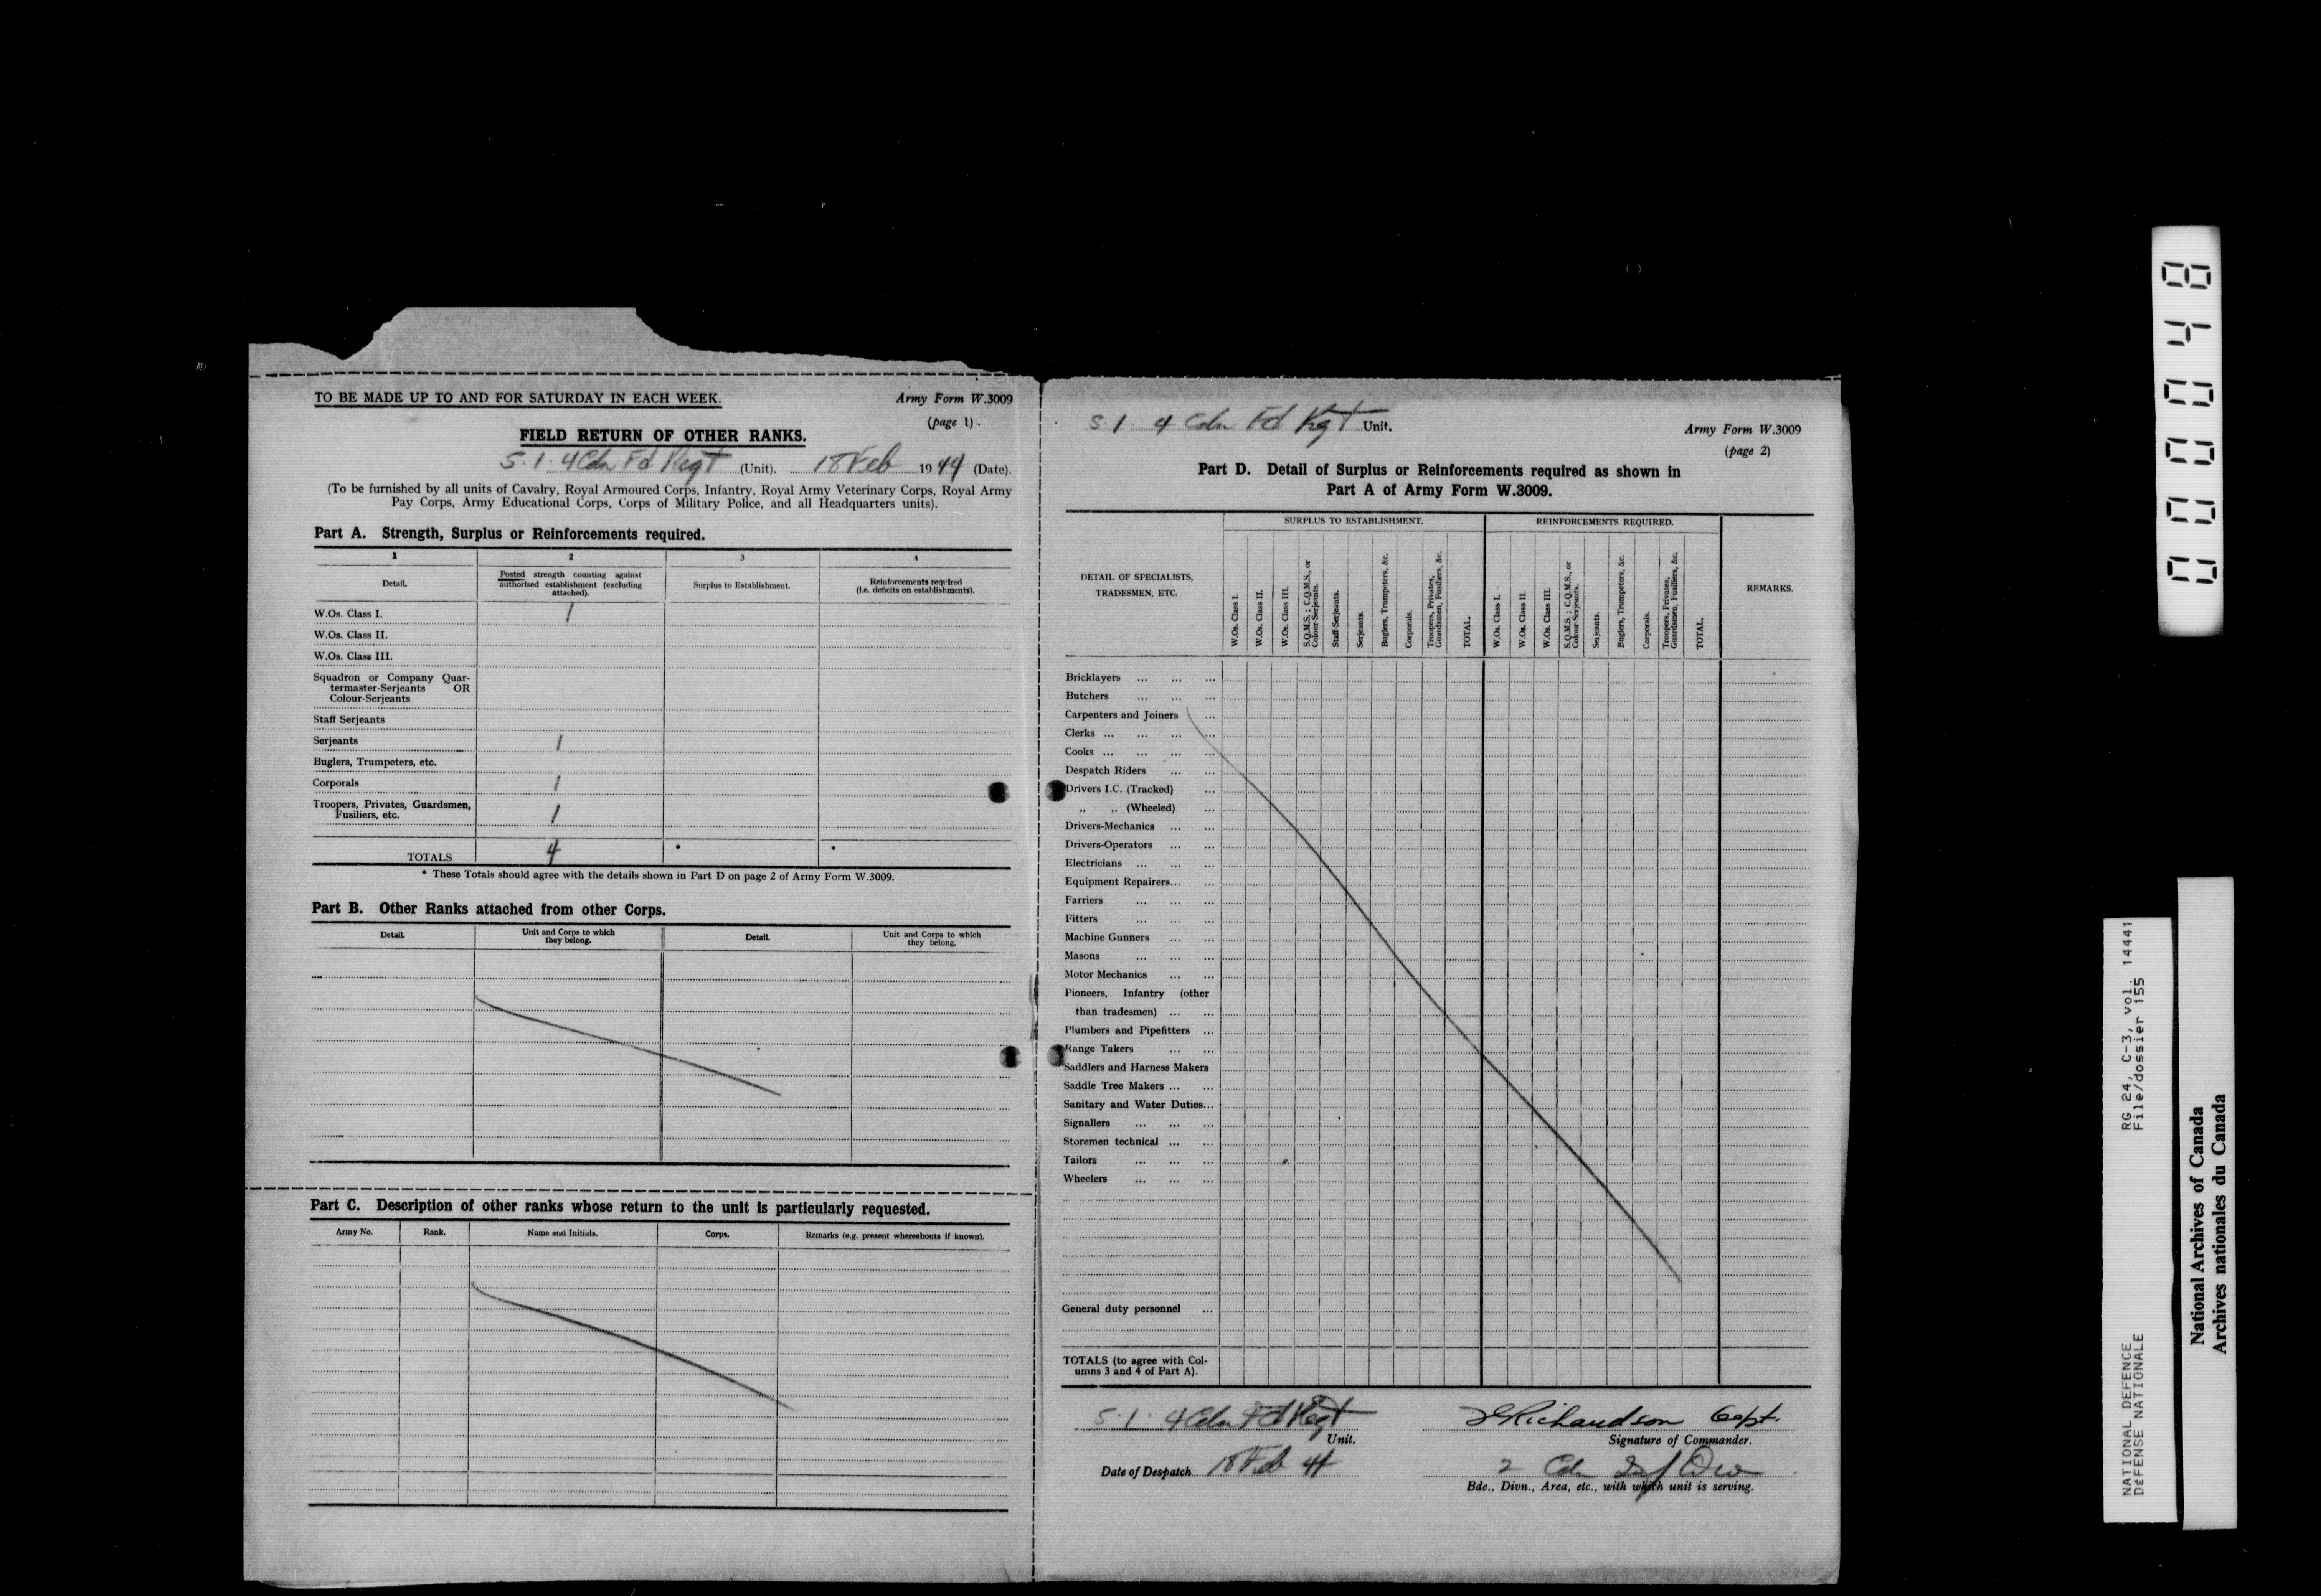 TO BE MADE UP TO AND FOR SATURDAY IN EACH WEEK.
Army Form W.3009
(page 1).
FIELD RETURN OF OTHER RANKS.
S.1. 4 Cdn Fd Regt (Unit). 18 Feb 1944 (Date).
(To be furnished by all units of Cavalry, Royal Armoured Corps, Infantry, Royal Army Veterinary Corps, Royal Army
Pay Corps, Army Educational Corps, Corps of Military Police, and all Headquarters units).
Part A. Strength, Surplus or Reinforcements required.
1 2 3 4
Detail.
Posted strength counting against
authorised establishment (excluding
attached).
Surplus to Establishment.
Reinforcements required
(i.e. deficits on establishments).
W.Os. Class I. 1
W.Os. Class II.
W.Os. Class III.
Squadron or Company Quar-
termaster-Serjeants OR
Colour-Serjeants
Staff Serjeants
Serjeants 1
Buglers, Trumpeters, etc.
Corporals 1
Troopers, Privates, Guardsmen,
Fusiliers, etc. 1
TOTALS 4 * *
* These Totals should agree with the details shown in Part D on page 2 of Army Form W.3009.
Part B. Other Ranks attached from other Corps.
Detail.
Unit and Corps to which
they belong.
Detail.
Unit and Corps to which
they belong.
Part C. Description of other ranks whose return to the unit is particularly requested.
Army No. Rank. Name and Initials. Corps. Remarks (e.g. present whereabouts if known).
S.1. 4 Cdn Fd Rgt Unit.
Army Form W.3009
(page 2)
Part D. Detail of Surplus or Reinforcements required as shown in
Part A of Army Form W.3009.
SURPLUS TO ESTABLISHMENT.
REINFORCEMENTS REQUIRED.
DETAIL OF SPECIALISTS,
TRADESMEN, ETC.
W.Os. Class I.
W.Os. Class II.
W.Os. Class III.
S.Q.M.S.; C.Q.M.S., or
Colour-Serjeants.
Staff-Serjeants.
Serjeants.
Buglers, Trumpeters, &c.
Corporals.
Troopers, Privates,
Guardsmen, Fusiliers, &c.
TOTAL.
W.Os. Class I.
W.Os. Class II.
W.Os. Class III.
S.Q.M.S.; C.Q.M.S., or
Colour-Serjeants.
Serjeants.
Buglers, Trumpeters, &c.
Corporals.
Troopers, Privates,
Guardsmen, Fusiliers, &c.
TOTAL.
REMARKS.
Bricklayers ... ... ...
Butchers ... ... ...
Carpenters and Joiners ...
Clerks ... ... ... ...
Cooks ... ... ... ...
Despatch Riders ... ...
Drivers I.C. (Tracked) ...
" " (Wheeled) ...
Drivers-Mechanics ... ...
Drivers-Operators ... ...
Electricians ... ... ...
Equipment Repairers... ...
Farriers ... ... ...
Fitters ... ... ...
Machine Gunners ... ...
Masons ... ... ...
Motor Mechanics ... ...
Pioneers, Infantry (other
than tradesmen) ... ...
Plumbers and Pipefitters ...
Range Takers ... ...
Saddlers and Harness Makers
Saddle Tree Makers ... ...
Sanitary and Water Duties...
Signallers ... ... ...
Storemen technical ... ...
Tailors ... ... ...
Wheelers ... ... ...
General duty personnel ...
TOTALS (to agree with Col-
umns 3 and 4 of Part A).
S.1. 4 Cdn Fd Regt
Unit.
Richardson Capt.
Signature of Commander.
Date of Despatch 18 Feb 44
2 Cdn Inf Div
Bde., Divn., Area, etc., with which unit is serving.
000048
RG 24, C-3, vol. 14441
File/dossier 155
NATIONAL DEFENCE
DÉFENSE NATIONALE
National Archives of Canada
Archives nationales du Canada